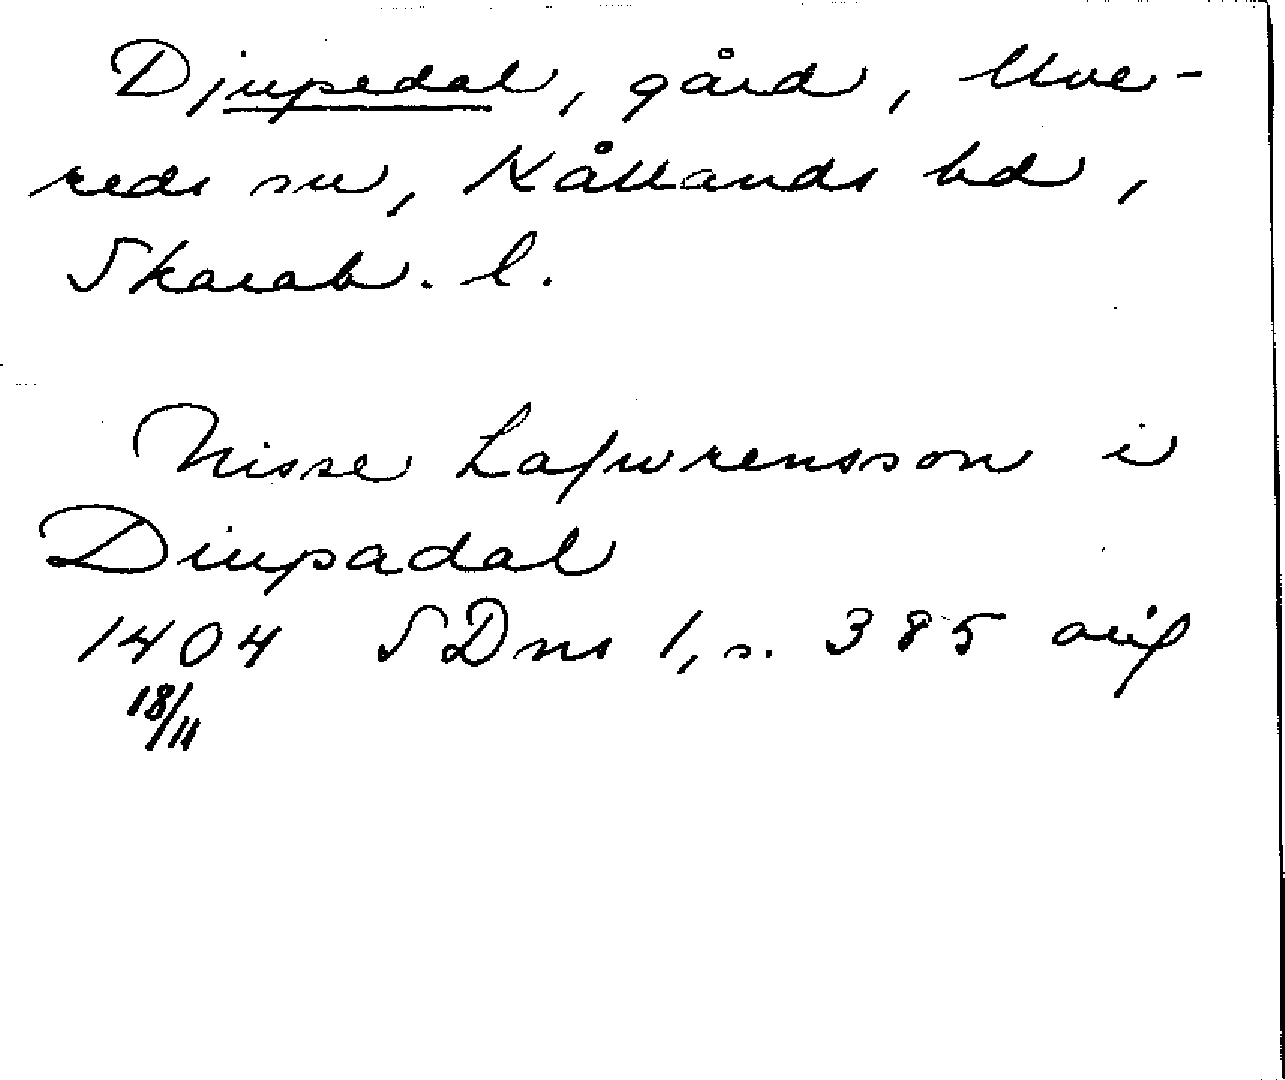 Djupedal, gård, Uve-
reds sn, Kållands hd,
Skarab. l.
Nisse Lafwrensson i
Diupadal
1404 SDns 1, s. 385 orig
18/11